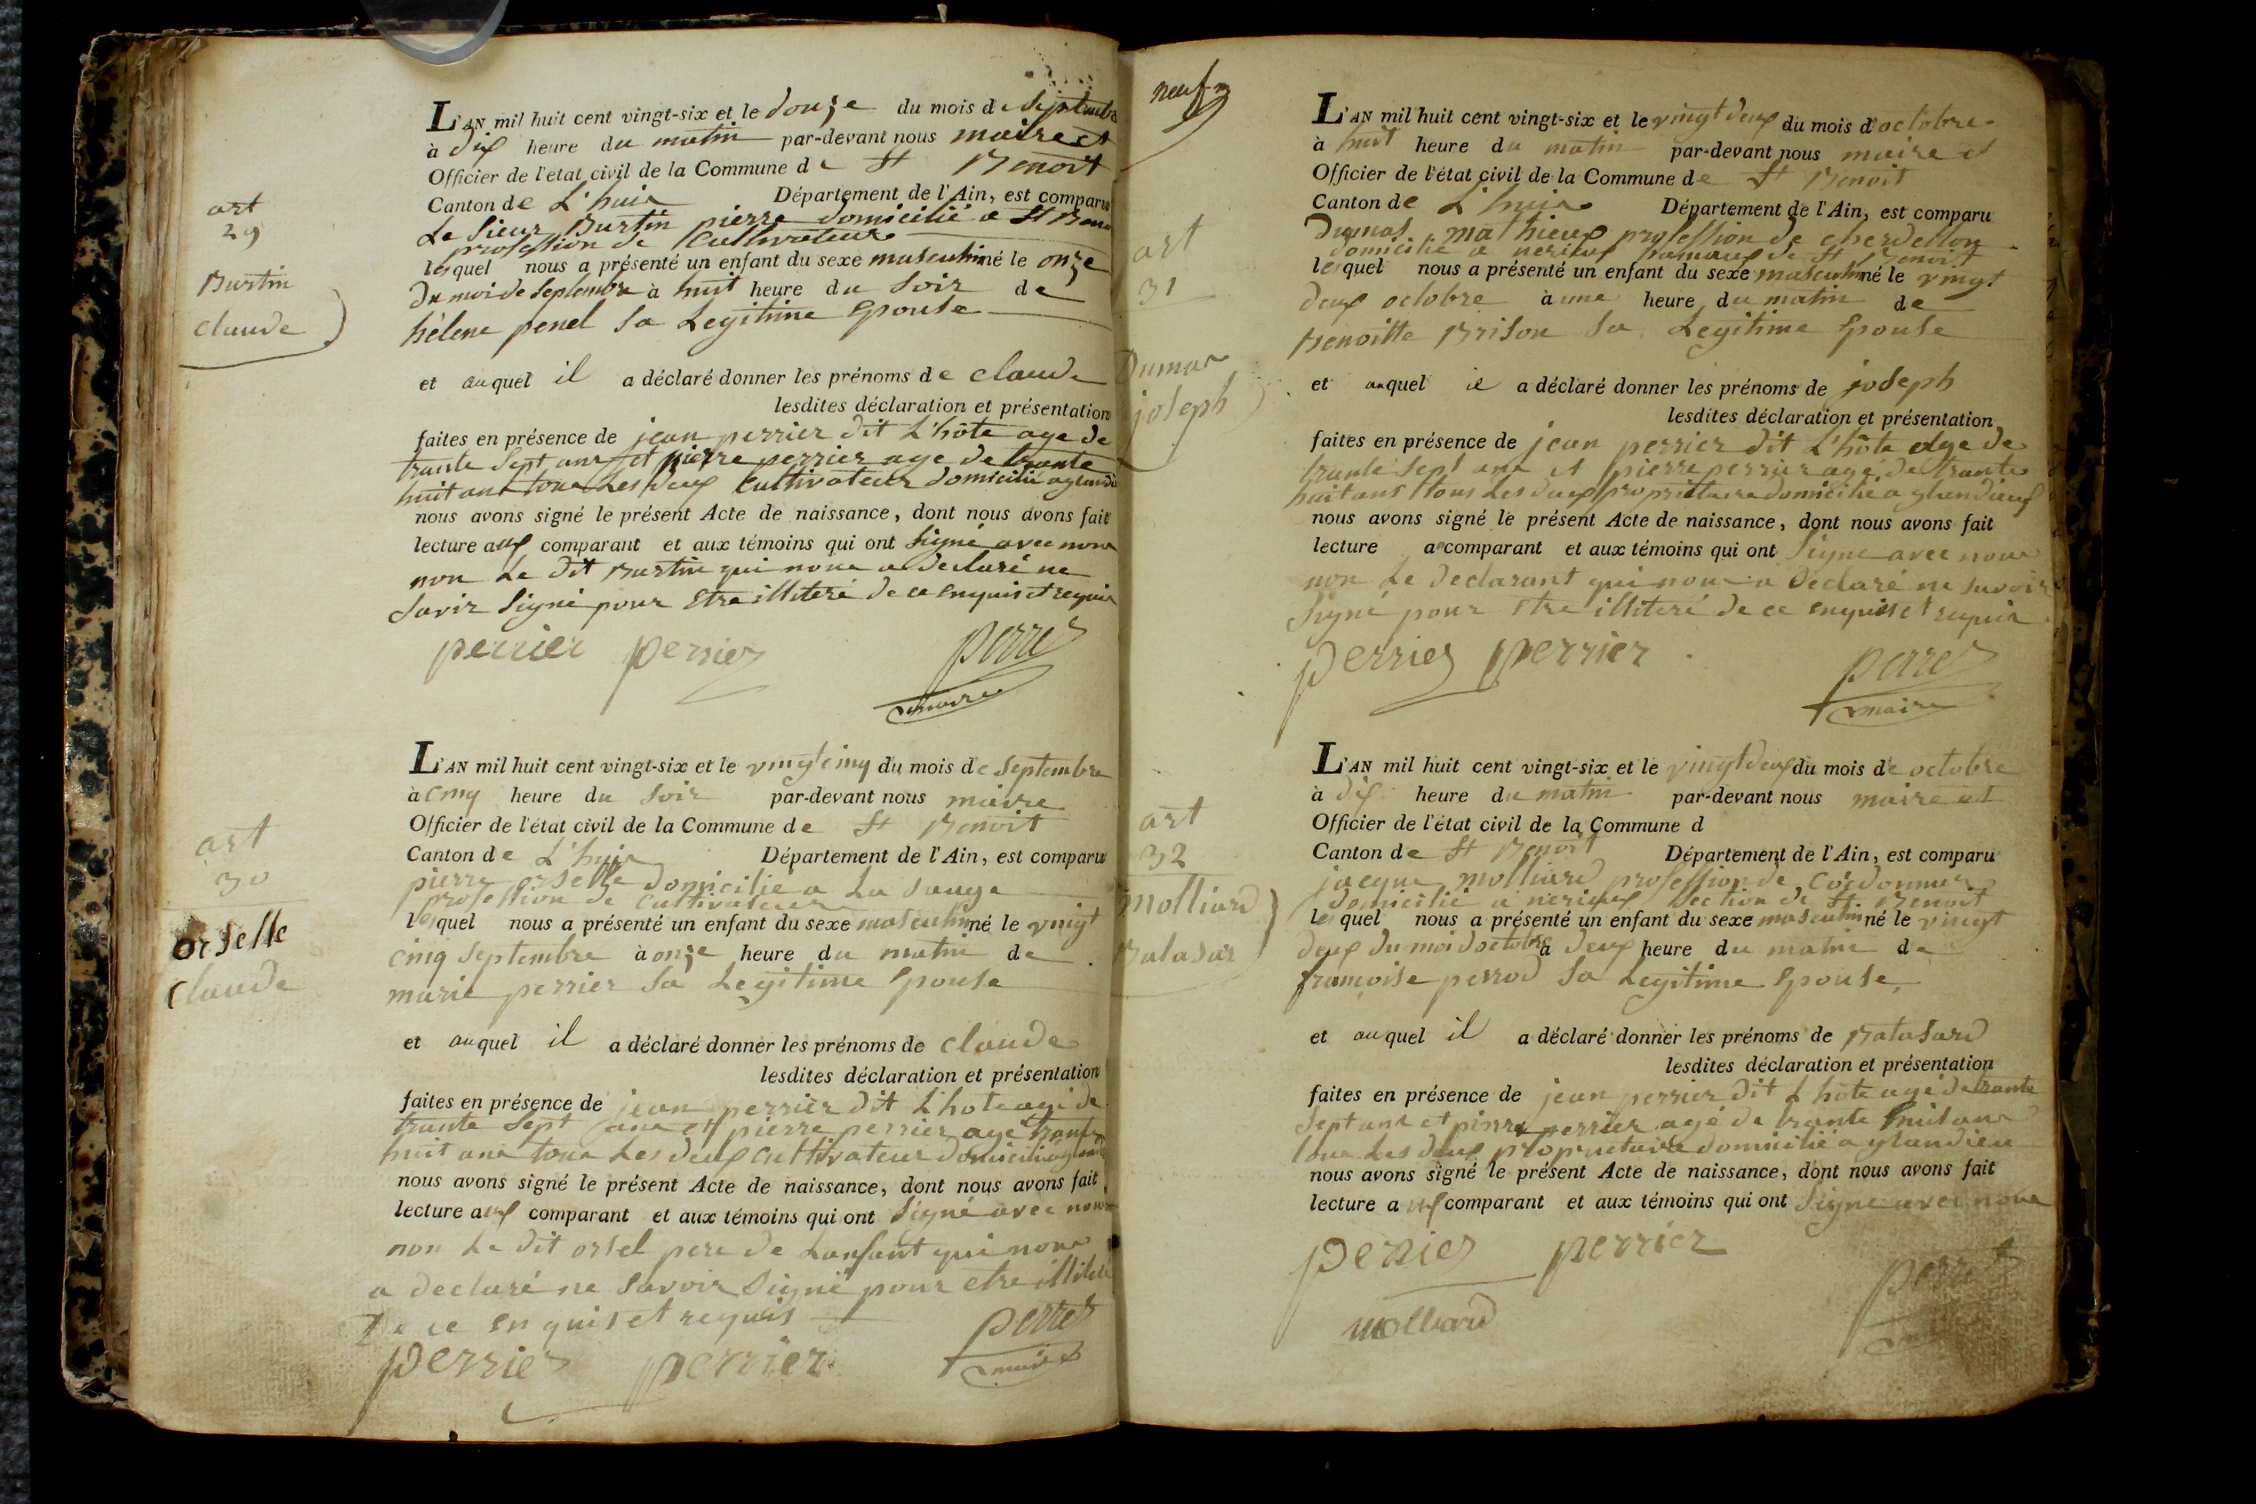 art
29
Burtin
claude
L'AN mil huit cent vingt-six et le douze du mois de Septembre
à dix heure du matin par-devant nous maire et
Officier de l'état civil de la Commune de St Benoit
Canton de L'huis Département de l'Ain, est comparu
Le Sieur Burtin pierre domicilié a St Benoi
profession de Cultivateur
lequel nous a présenté un enfant du sexe masculin né le onze
du moi de Septembre à huit heure du Soir de
hélene penel Sa Legitime Epouse
et auquel il a déclaré donner les prénoms de claude
lesdites déclaration et présentation
faites en présence de jean perrier dit L'hôte age de
trante Sept ans et pierre perrier age de trante
huit ans tous Les deux Cultivateur domicilié a glandi
nous avons signé le présent Acte de naissance, dont nous avons fait
lecture aux comparant et aux témoins qui ont Signé avec nous
non Le dit Burtin qui nous a déclaré ne
Savir Signé pour Etre illiteré de ce enquis et requis
perrier perrier perret
maire
art
30
orselle
Claude
L'AN mil huit cent vingt-six et le vingt cinq du mois de Septembre
à cinq heure du Soir par-devant nous maire
Officier de l'état civil de la Commune de St Benoit
Canton de L'huis Département de l'Ain, est comparu
pierre orselle domicilie a La Sauge
profession de Cultivateur
lequel nous a présenté un enfant du sexe masculin né le vingt
cinq Septembre à onze heure du matin de
marie perrier Sa Legitime Epouse
et auquel il a déclaré donner les prénoms de claude
lesdites déclaration et présentation
faites en présence de jean perrier dit L'hote agé de
trante Sept ans et pierre perrier agé trante
huit ans tous Les deux Cultivateur domicilié a glandi
nous avons signé le présent Acte de naissance, dont nous avons fait
lecture aux comparant et aux témoins qui ont Signé avec nous
non Le dit orsel pere de Lanfant qui nous
a declaré ne Savoir Signé pour etre illiteré
De ce enquis et requis
perrier perrier perret
maire
neuf
art
31
Dumas
joseph
L'AN mil huit cent vingt-six et le vingt deux du mois d'octobre
à huit heure du matin par-devant nous maire et
Officier de l'état civil de la Commune de St Benoit
Canton de L'huis Département de l'Ain, est comparu
Dumas mathieux profession de
domicilié a nerieux hamaux de St Benoit
lequel nous a présenté un enfant du sexe masculin né le vingt
deux octobre à une heure du matin de
Benoitte Brison Sa Legitime Epouse
et auquel il a déclaré donner les prénoms de joseph
lesdites déclaration et présentation
faites en présence de jean perrier dit L'hôte age de
trante Sept ans et pierre perrier agé de trante
huit ans tous Les deux propriétaire domicilié a glandieux
nous avons signé le présent Acte de naissance, dont nous avons fait
lecture a comparant et aux témoins qui ont Signé avec nous
non Le Declarant qui nous a Déclaré ne Savoir
Signé pour Etre illiteré de ce enquis et requis
perrier perrier perret
maire
art
32
molliard
Balasar
L'AN mil huit cent vingt-six et le vingt deux du mois de octobre
à dix heure du matin par-devant nous maire et
Officier de l'état civil de la Commune d
Canton de St Benoit Département de l'Ain, est comparu
jacque molliard profession de Cordonnier
domicilié a nerieux Section de St Benoit
lequel nous a présenté un enfant du sexe masculin né le vingt
deux du moi doctobre à deux heure du matin de
françoise perrod Sa Legitime Epouse
et auquel il a déclaré donner les prénoms de Balasard
lesdites déclaration et présentation
faites en présence de jean perrier dit L'hôte agé de trante
Sept ans et pierre perrier agé de trante huit ans
tous Les deux proprietaire domicilié a glandieu
nous avons signé le présent Acte de naissance, dont nous avons fait
lecture aux comparant et aux témoins qui ont Signé avec nous
perrier perrier perret
molliard